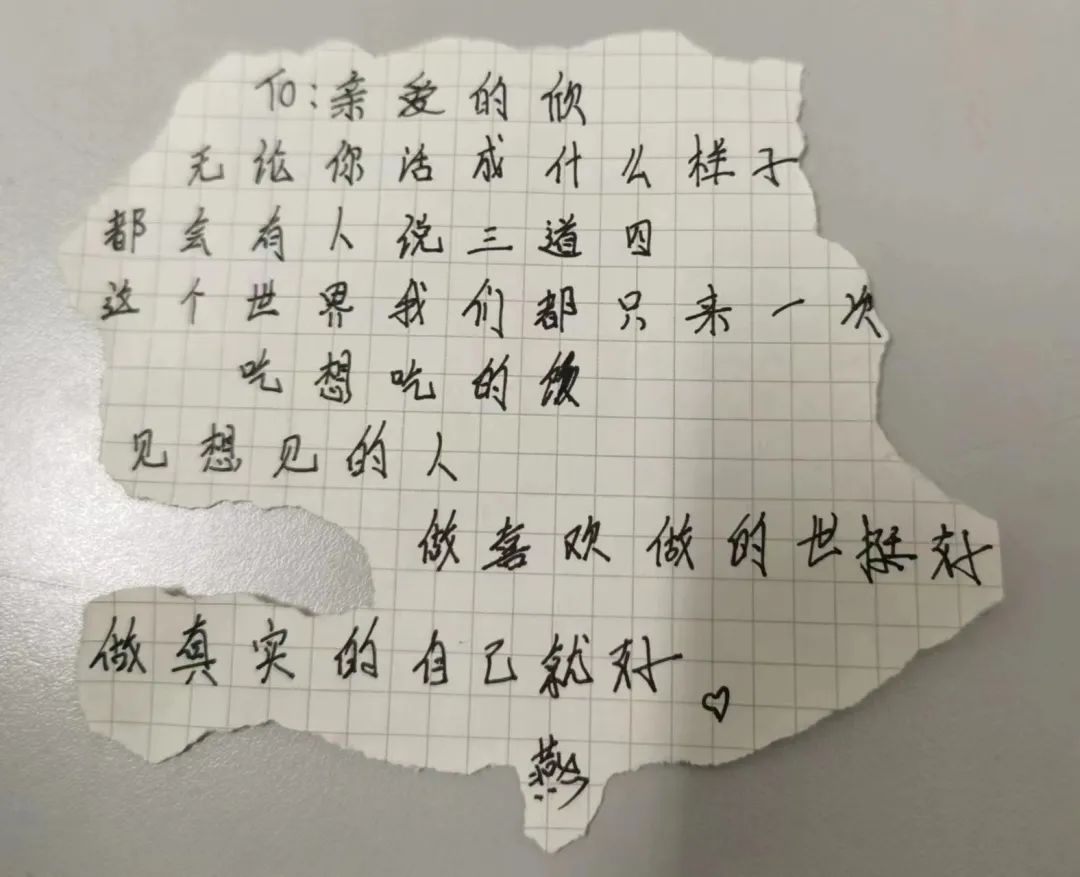 TO:亲爱的欣
无论你活成什么样子
都会有人说三道四
这个世界我们都只来一次
吃想吃的饭
见想见的人
做喜欢做的世挺好
做真实的自己就好
燕